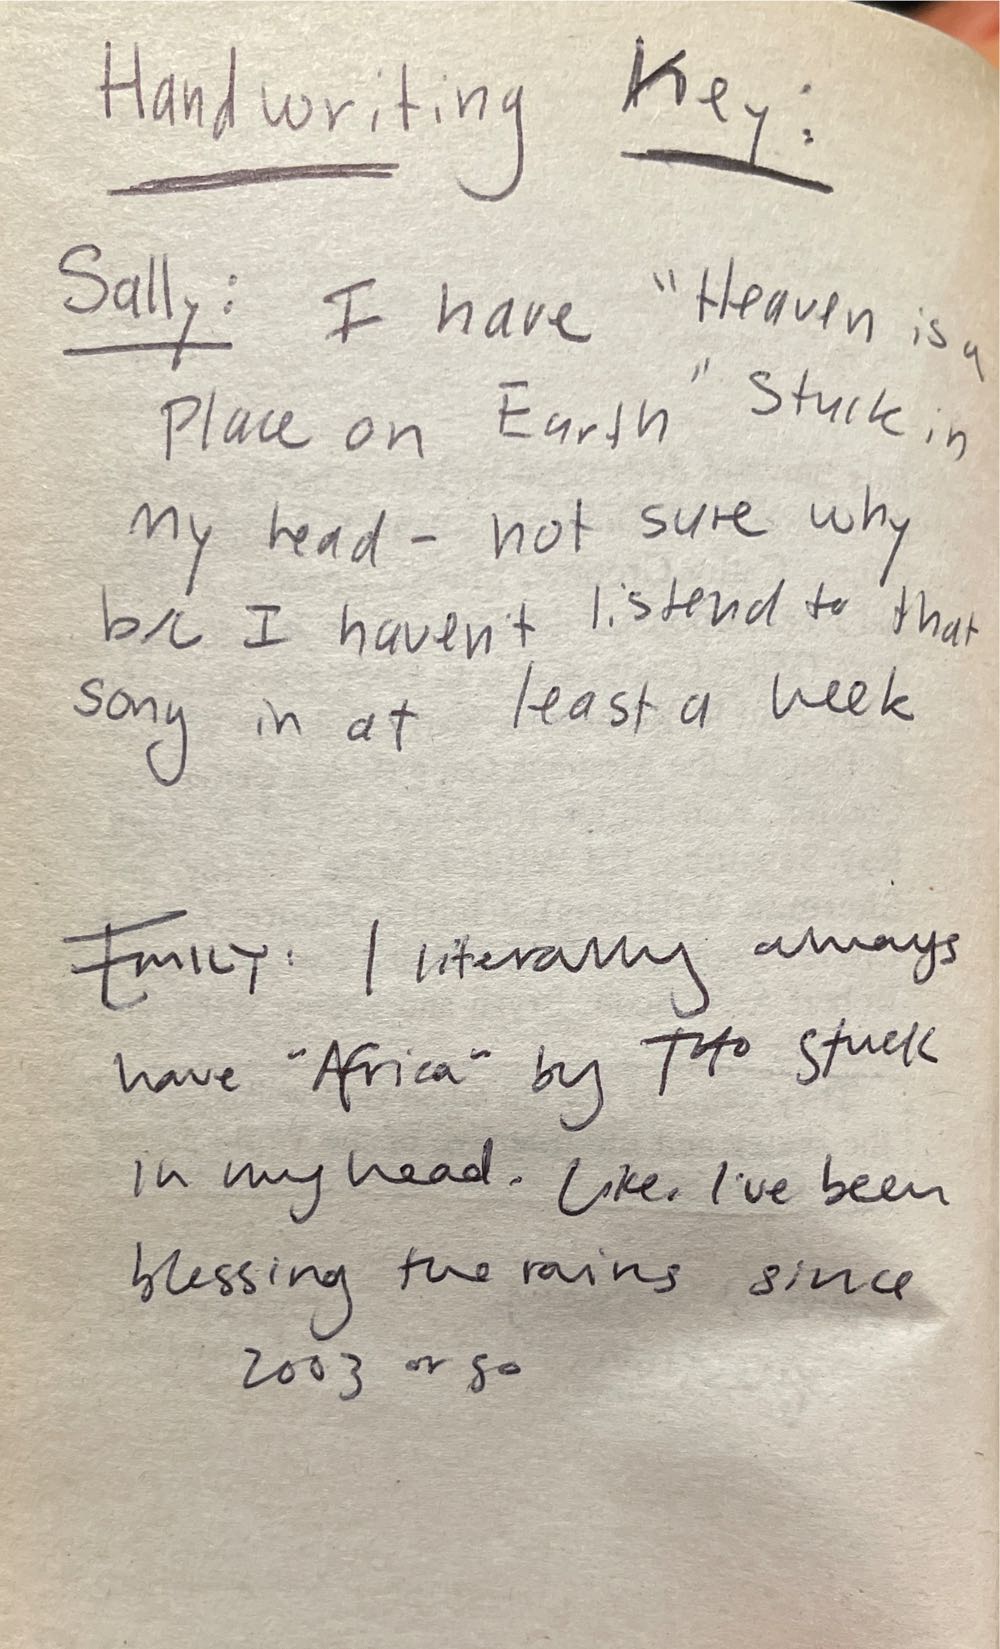 Handwriting Key:
Sally: I have "Heaven is a
Place on Earth" Stuck in
my head - not sure why
bc I haven't listend to that
song in at least a week
Emily: I literally always
have "Africa" by Toto stuck
in my head. Like. I've been
blessing the rains since
2003 or so